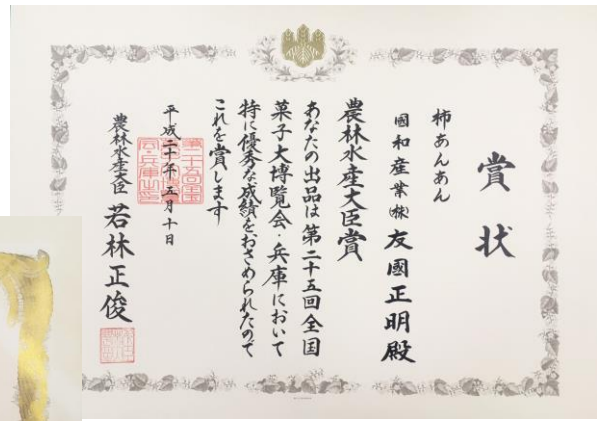 賞状
柿あんあん
國和産業㈱ 友國正明殿
農林水産大臣賞
あなたの出品は第二十五回全国
菓子大博覧会・兵庫において
特に優秀な成績をおさめられたので
これを賞します
平成二十年五月十日
農林水産大臣 若林正俊